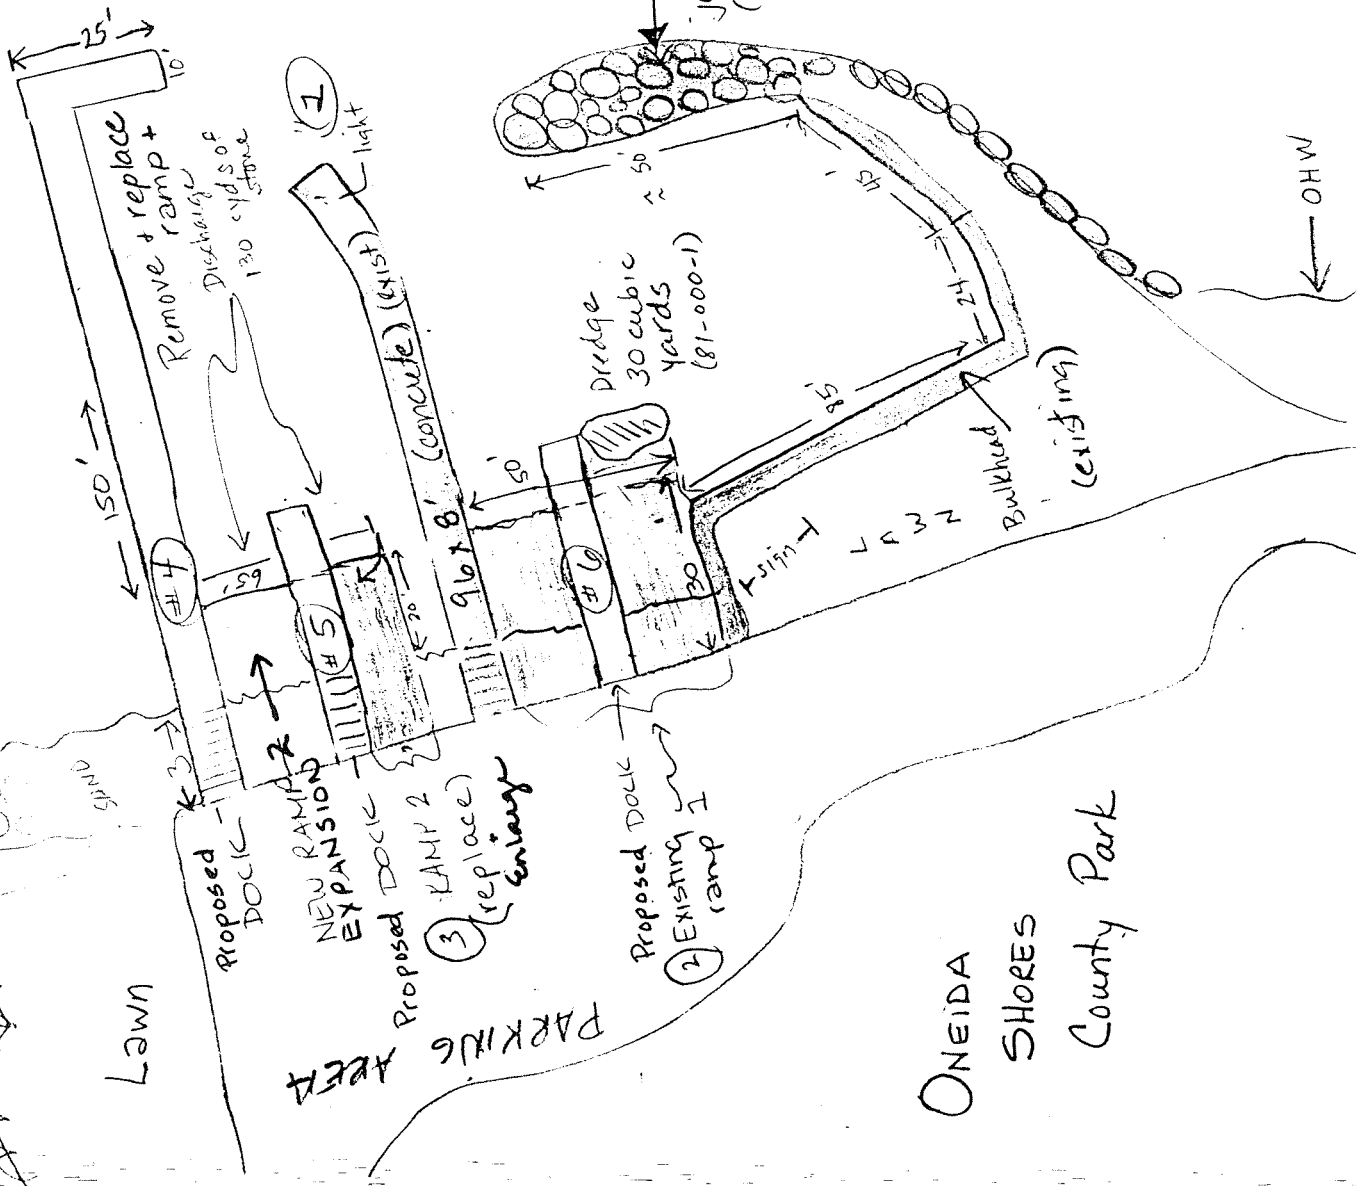 25'
10'
150'
Remove + replace
ramp +
Discharge
130 cyds of
stone
1
light
(concrete) (exist)
96 x 8'
50'
#4
65'
#5
20'
#6
30
Dredge
30 cubic
yards
(81-000-1)
≈ 50'
45'
24
85'
Bulkhead
(existing)
sign
LAWN
← OHW
SAND
3
Lawn
Proposed
DOCK
NEW RAMP
EXPANSION
Proposed DOCK
3 RAMP 2
(replace)
+
Enlarge
Proposed DOCK
2 Existing
ramp 1
PARKING AREA
ONEIDA
SHORES
County Park